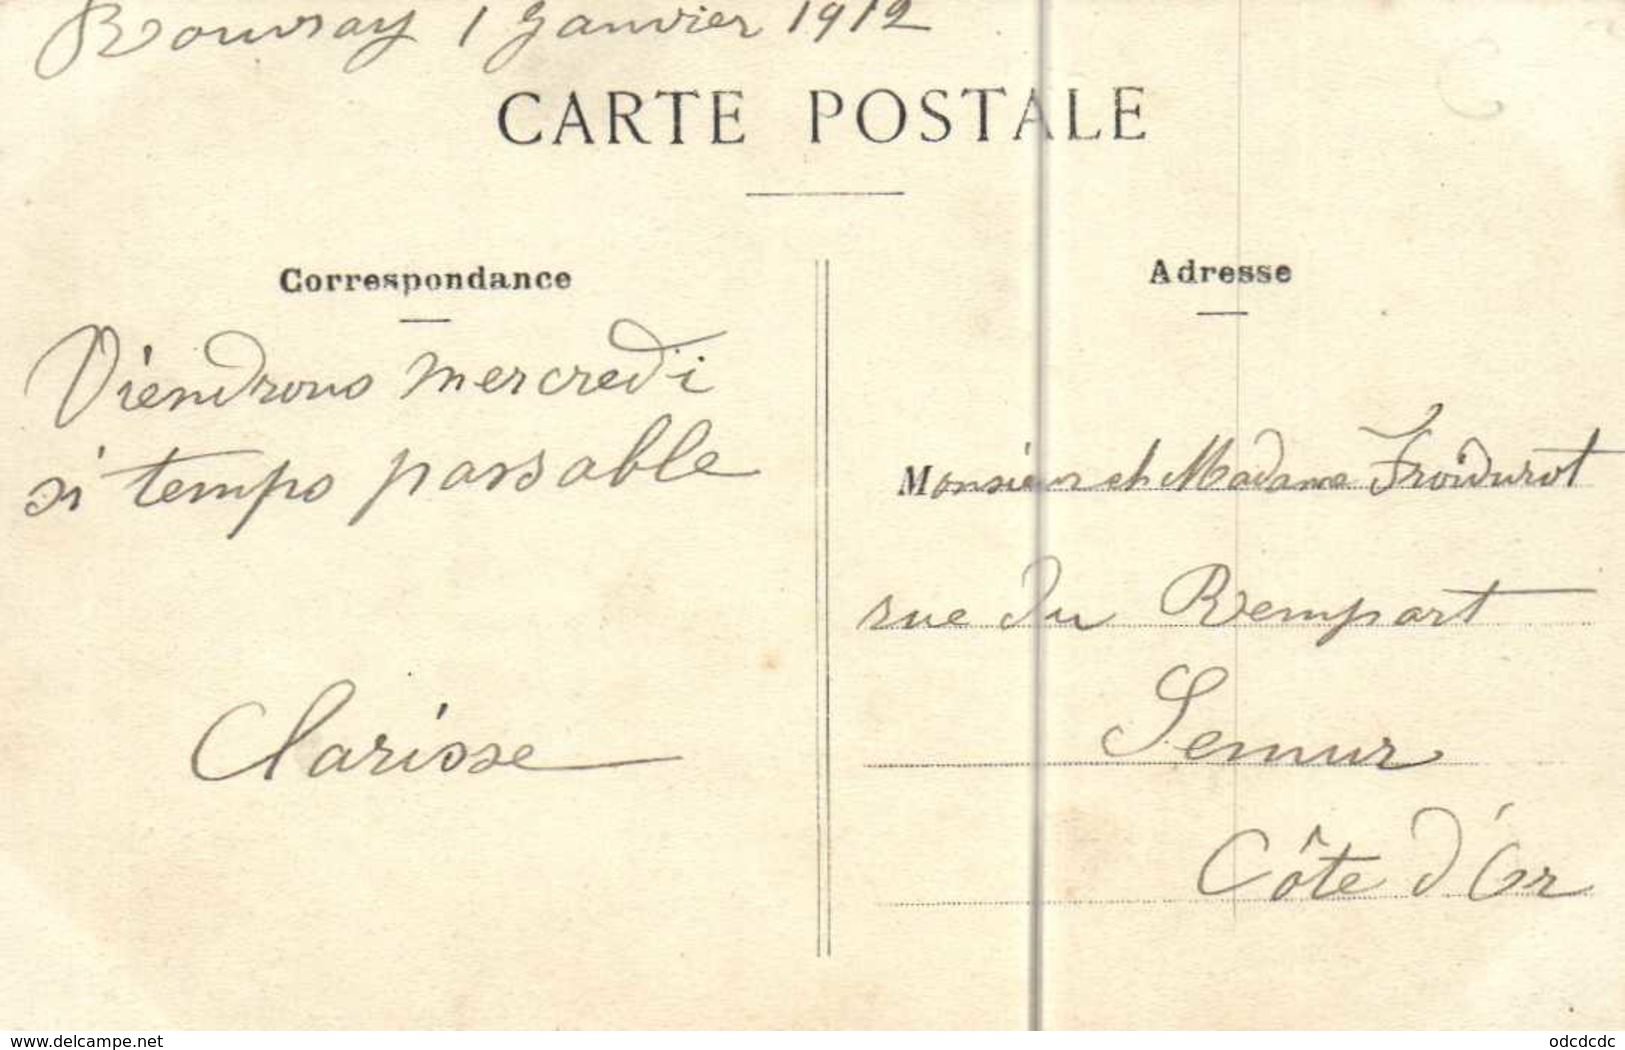 Rouvray 1 Janvier 1912
CARTE POSTALE
Correspondance
Viendrons mercredi
si temps passable
Clarisse
Adresse
Monsieur et Madame Froidurot
rue du Rempart
Semur
Côte d'Or
www.delcampe.net
odcdcdc